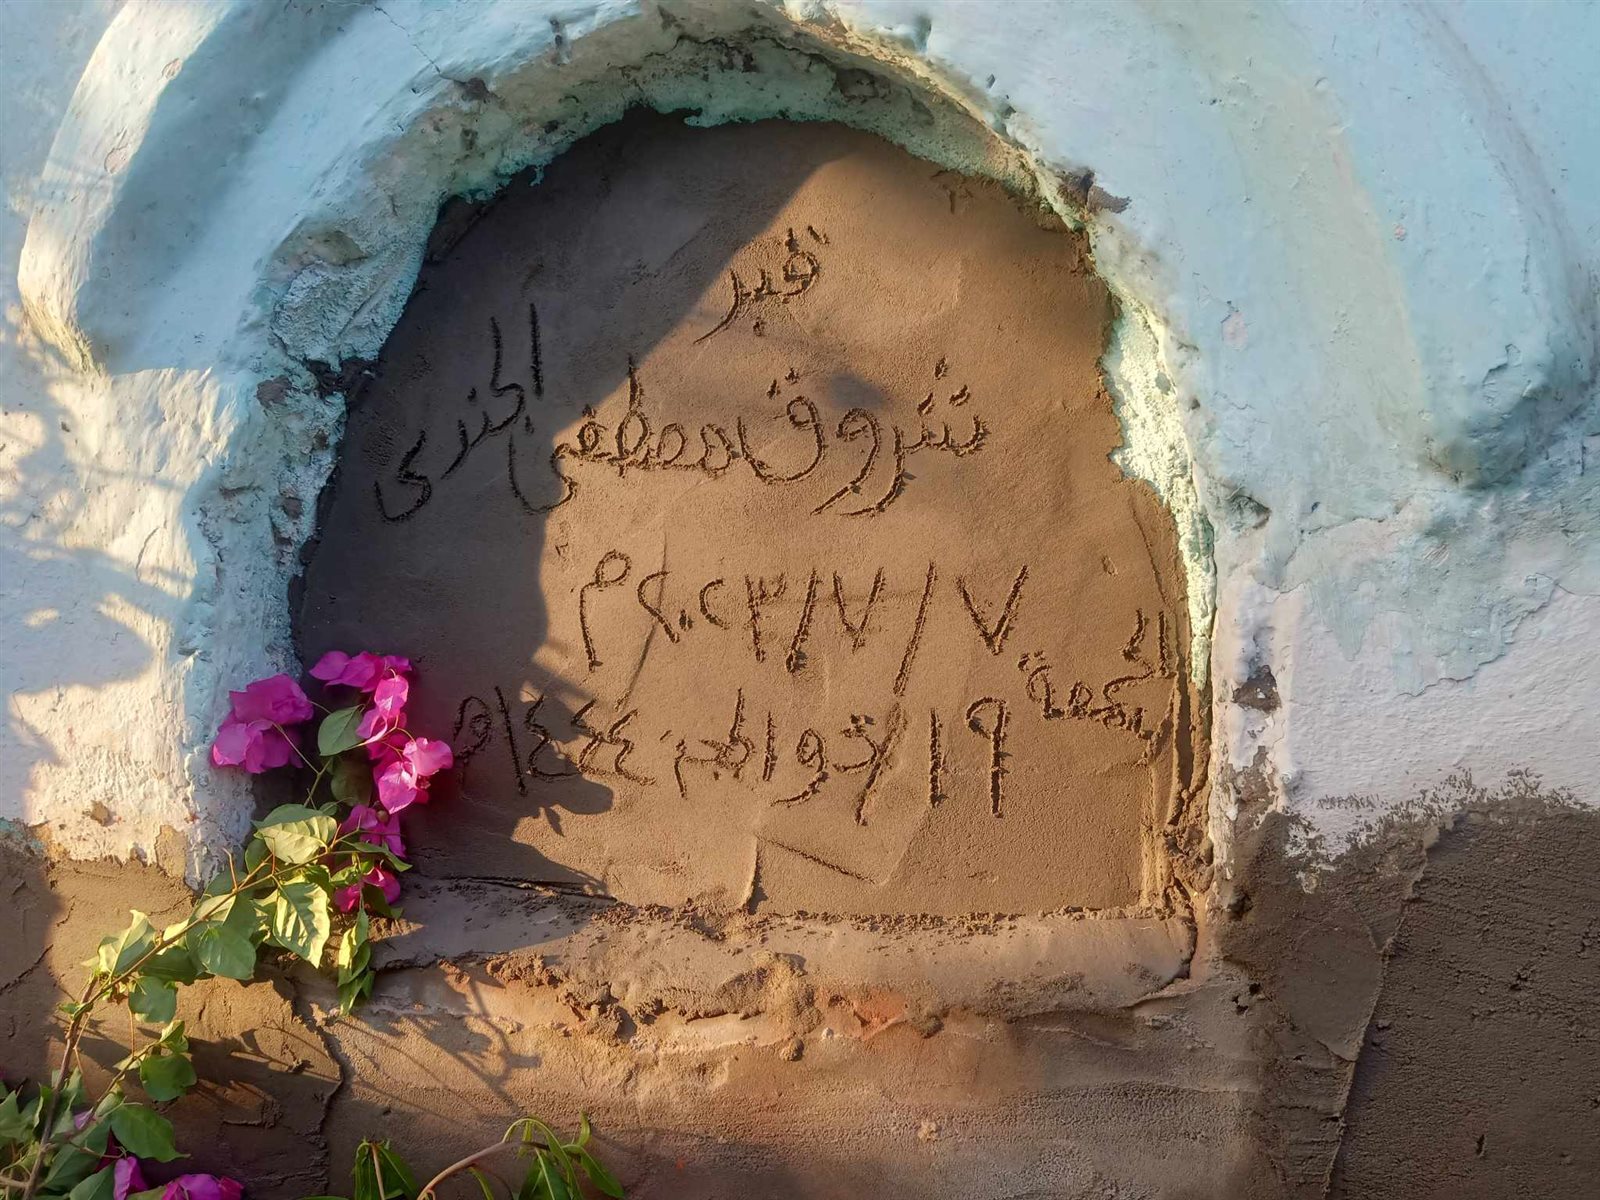 قبر
شروق مصطفى الجندى
الجمعة ٧/٧/٢٠٢٣م
١٩/ذو الحجة ١٤٤٤هـ